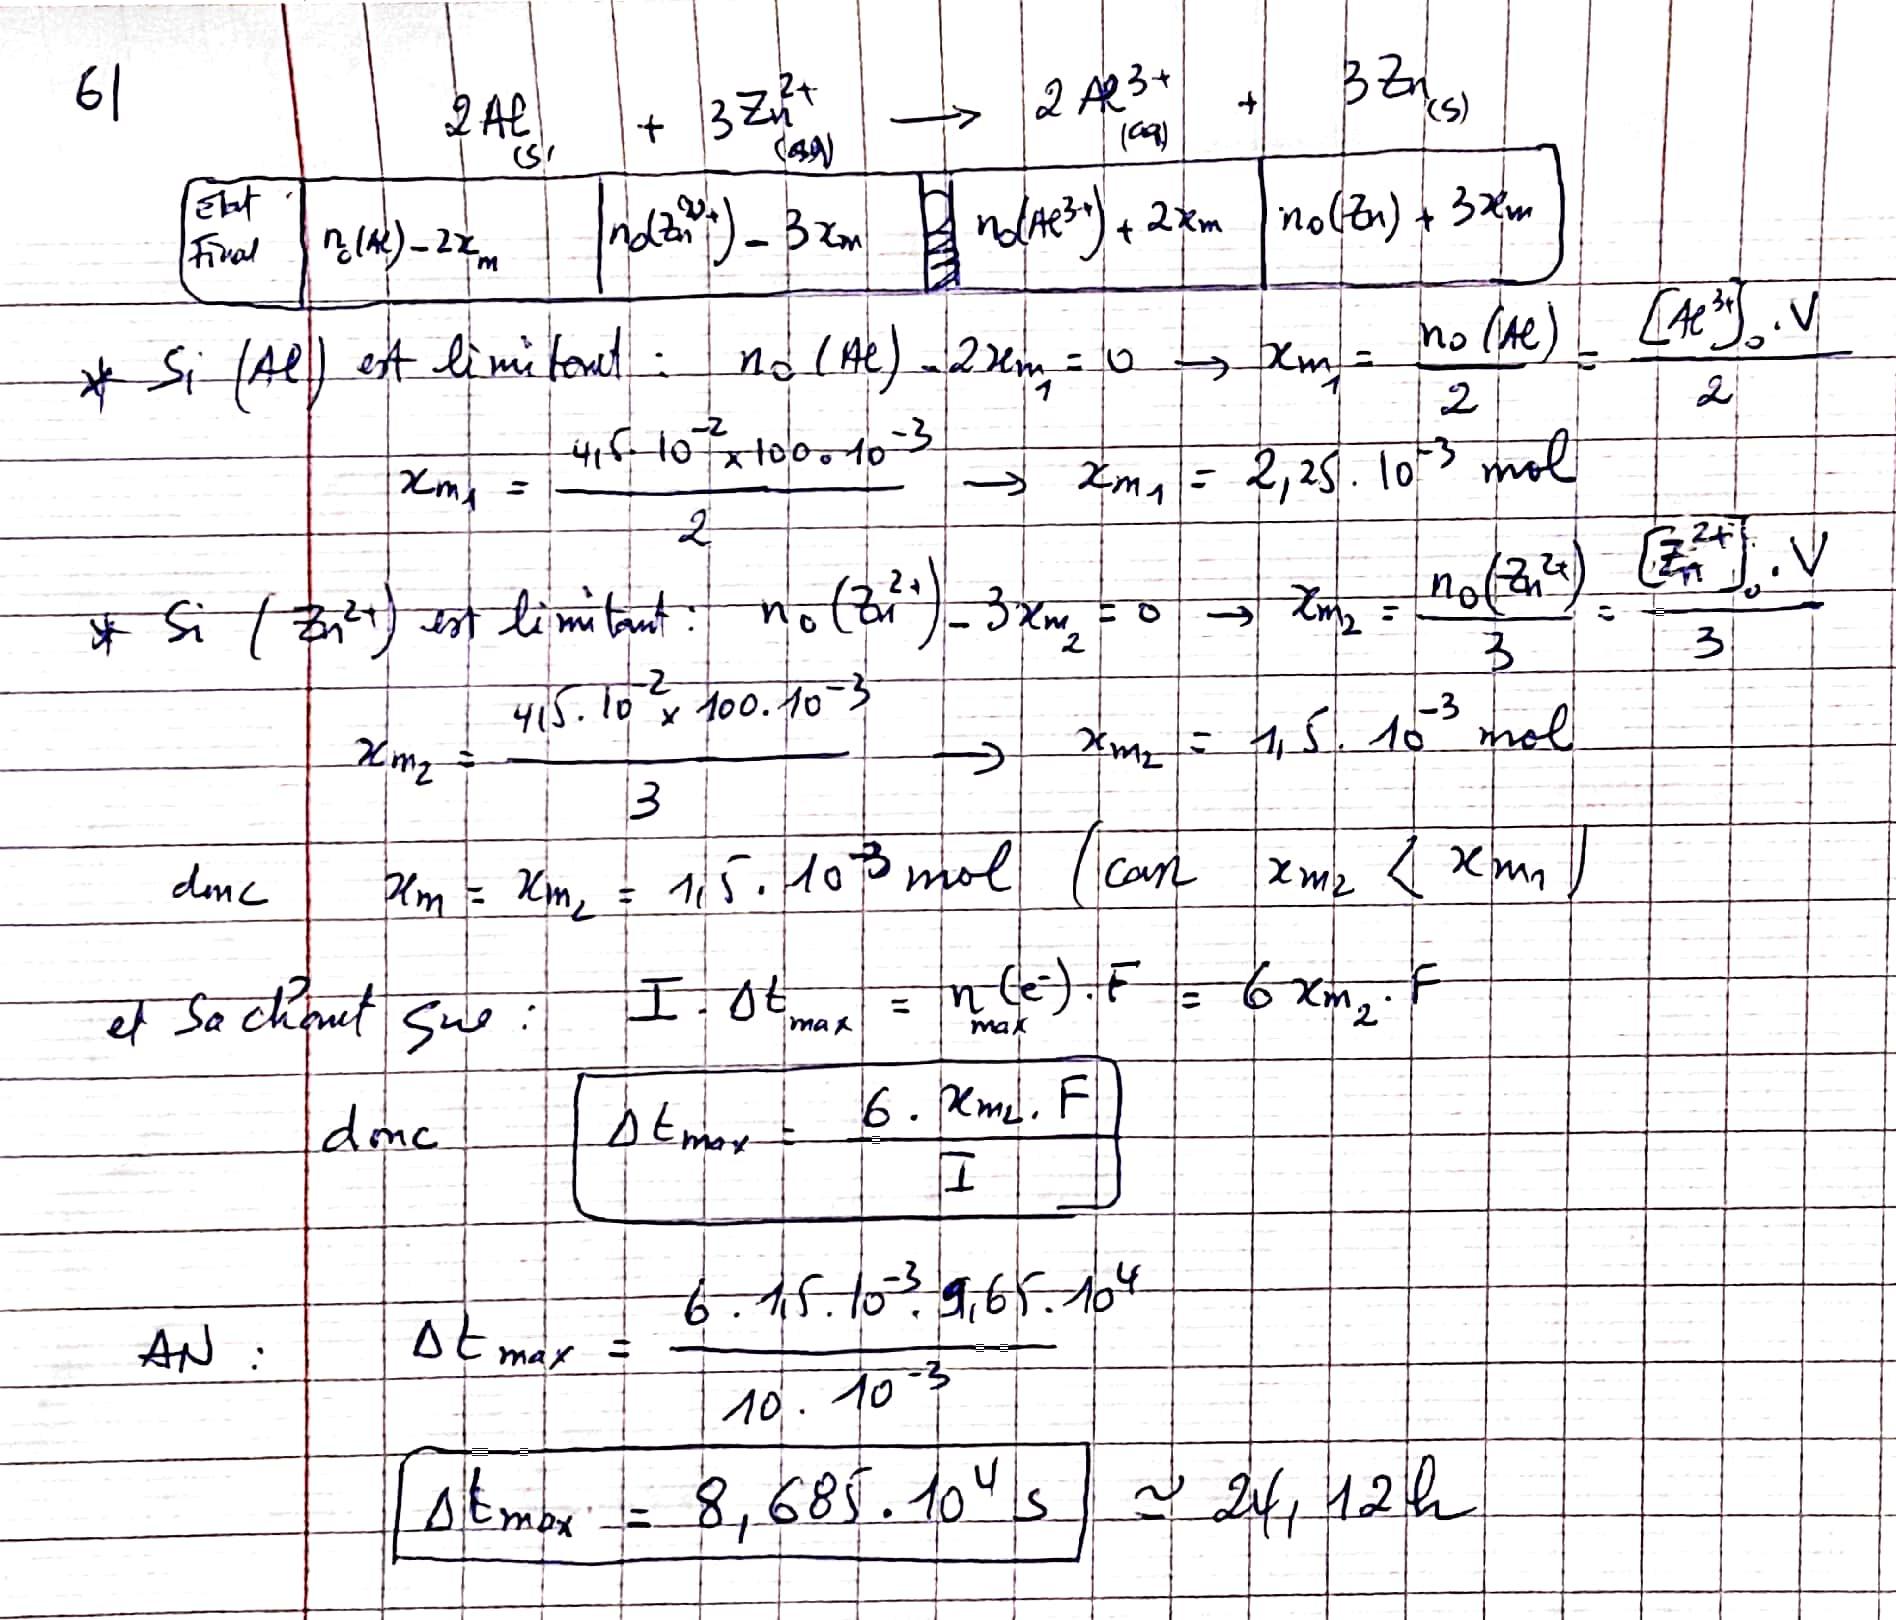 6/
2Al(s) + 3Zn²⁺(aq) → 2Al³⁺(aq) + 3Zn(s)
Etat Final | n₀(Al) - 2xm | n₀(Zn²⁺) - 3xm | n₀(Al³⁺) + 2xm | n₀(Zn) + 3xm
* Si (Al) est limitant : n₀(Al) - 2xm₁ = 0 → xm₁ = n₀(Al)/2 = [Al³⁺]₀.V/2
xm₁ = 4,5.10⁻² x 100.10⁻³/2 → xm₁ = 2,25.10⁻³ mol
* Si (Zn²⁺) est limitant : n₀(Zn²⁺) - 3xm₂ = 0 → xm₂ = n₀(Zn²⁺)/3 = [Zn²⁺]₀.V/3
xm₂ = 4,5.10⁻² x 100.10⁻³/3 → xm₂ = 1,5.10⁻³ mol
donc xm = xm₂ = 1,5.10⁻³ mol (car xm₂ < xm₁)
et Sachant que : I.Δt max = n max(e⁻).F = 6 xm₂.F
donc Δt max = 6.xm₂.F/I
AN : Δt max = 6.1,5.10⁻³.9,65.10⁴/10.10⁻³
Δt max = 8,685.10⁴ s ≃ 24,12h